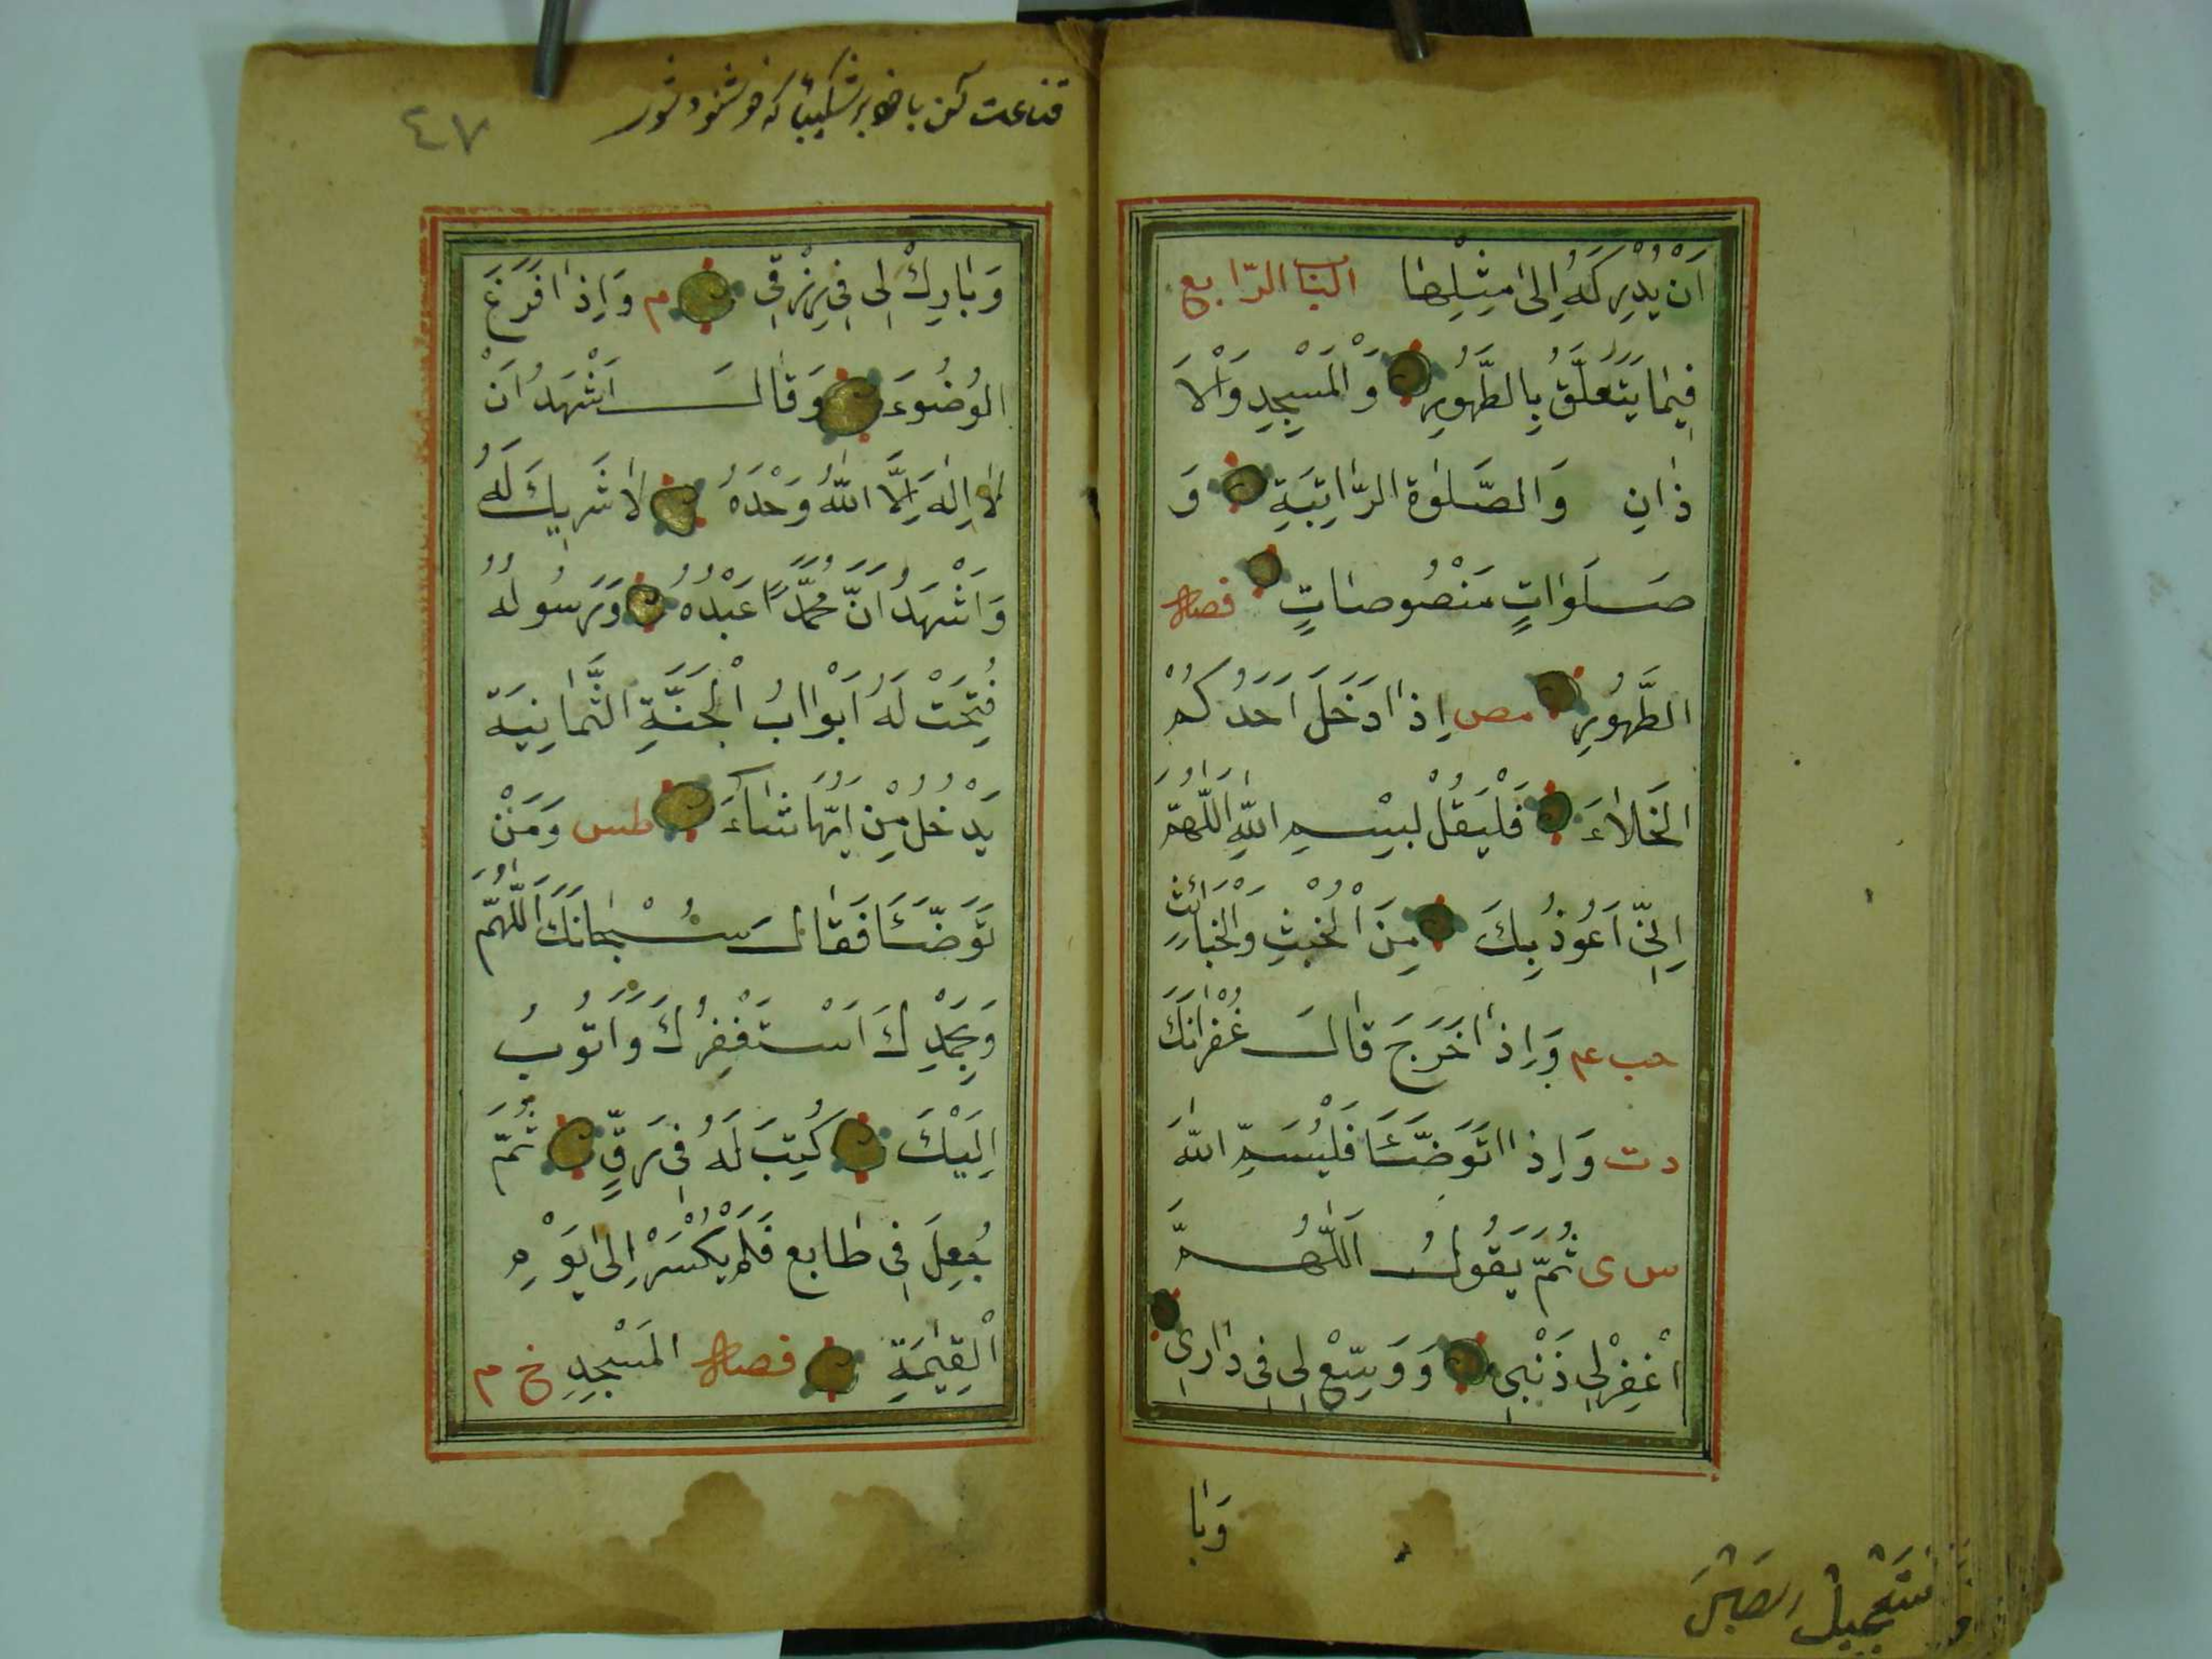 اَنْ يُدْرِكَهُ اِلىٰ مِثْلِهٰا البٰاب الرّابع
فِيمٰا يَتَعَلَّقُ بِالطَّهُورِ وَالْمَسْجِدِ وَالْاَ
ذٰانِ وَالصَّلٰوة الرّٰاتِبَةِ وَ
صَلَوٰاتٍ مَنْصُوصٰاتٍ فصل
الطَّهُورِ مص اِذٰا دَخَلَ اَحَدُكُمْ
الخَلاٰءَ فَلْيَقُلْ بِسْمِ اللّٰهِ اَللّٰهُمَّ
اِنّي اَعُوذُ بِكَ مِنَ الْخُبْثِ وَالْخَبٰائِث
حب عم وَاِذٰا خَرَجَ قٰالَ غُفْرٰانَكَ
د ت وَاِذٰا تَوَضَّئَا فَلْيُسَمِّ اللّٰهَ
س ى ثُمَّ يَقُولُ اَللّٰهُمَّ
اغْفِرْ لِي ذَنْبِي وَوَسِّعْ لِي فِي دٰارِي
وَبٰا
قناعت كن
٤٧
وَبٰارِكْ لِي فِي رِزْقِي م وَاِذٰا فَرَغَ
الوُضُوءَ وَقٰالَ اَشْهَدُ اَنْ
لاٰ اِلٰهَ اِلَّا اللّٰهُ وَحْدَهُ لاٰ شَرِيكَ لَهُ
وَاَشْهَدُ اَنَّ مُحَمَّدًا عَبْدُهُ وَرَسُولُهُ
فُتِحَتْ لَهُ اَبْوٰابُ الْجَنَّةِ الثَّمٰانِيَة
يَدْخُلُ مِنْ اَيِّهٰا شٰاءَ طس وَمَنْ
تَوَضَّئَا فَقٰالَ سُبْحٰانَكَ اَللّٰهُمَّ
وَبِحَمْدِكَ اَسْتَغْفِرُكَ وَاَتُوبُ
اِلَيْكَ كُتِبَ لَهُ فِي رَقٍّ ثُمَّ
جُعِلَ فِي طٰابع فَلَمْ يُكْسَرْ اِلىٰ يَوْمِ
الْقِيٰمَةِ فصل المَسْجِدِ خ م